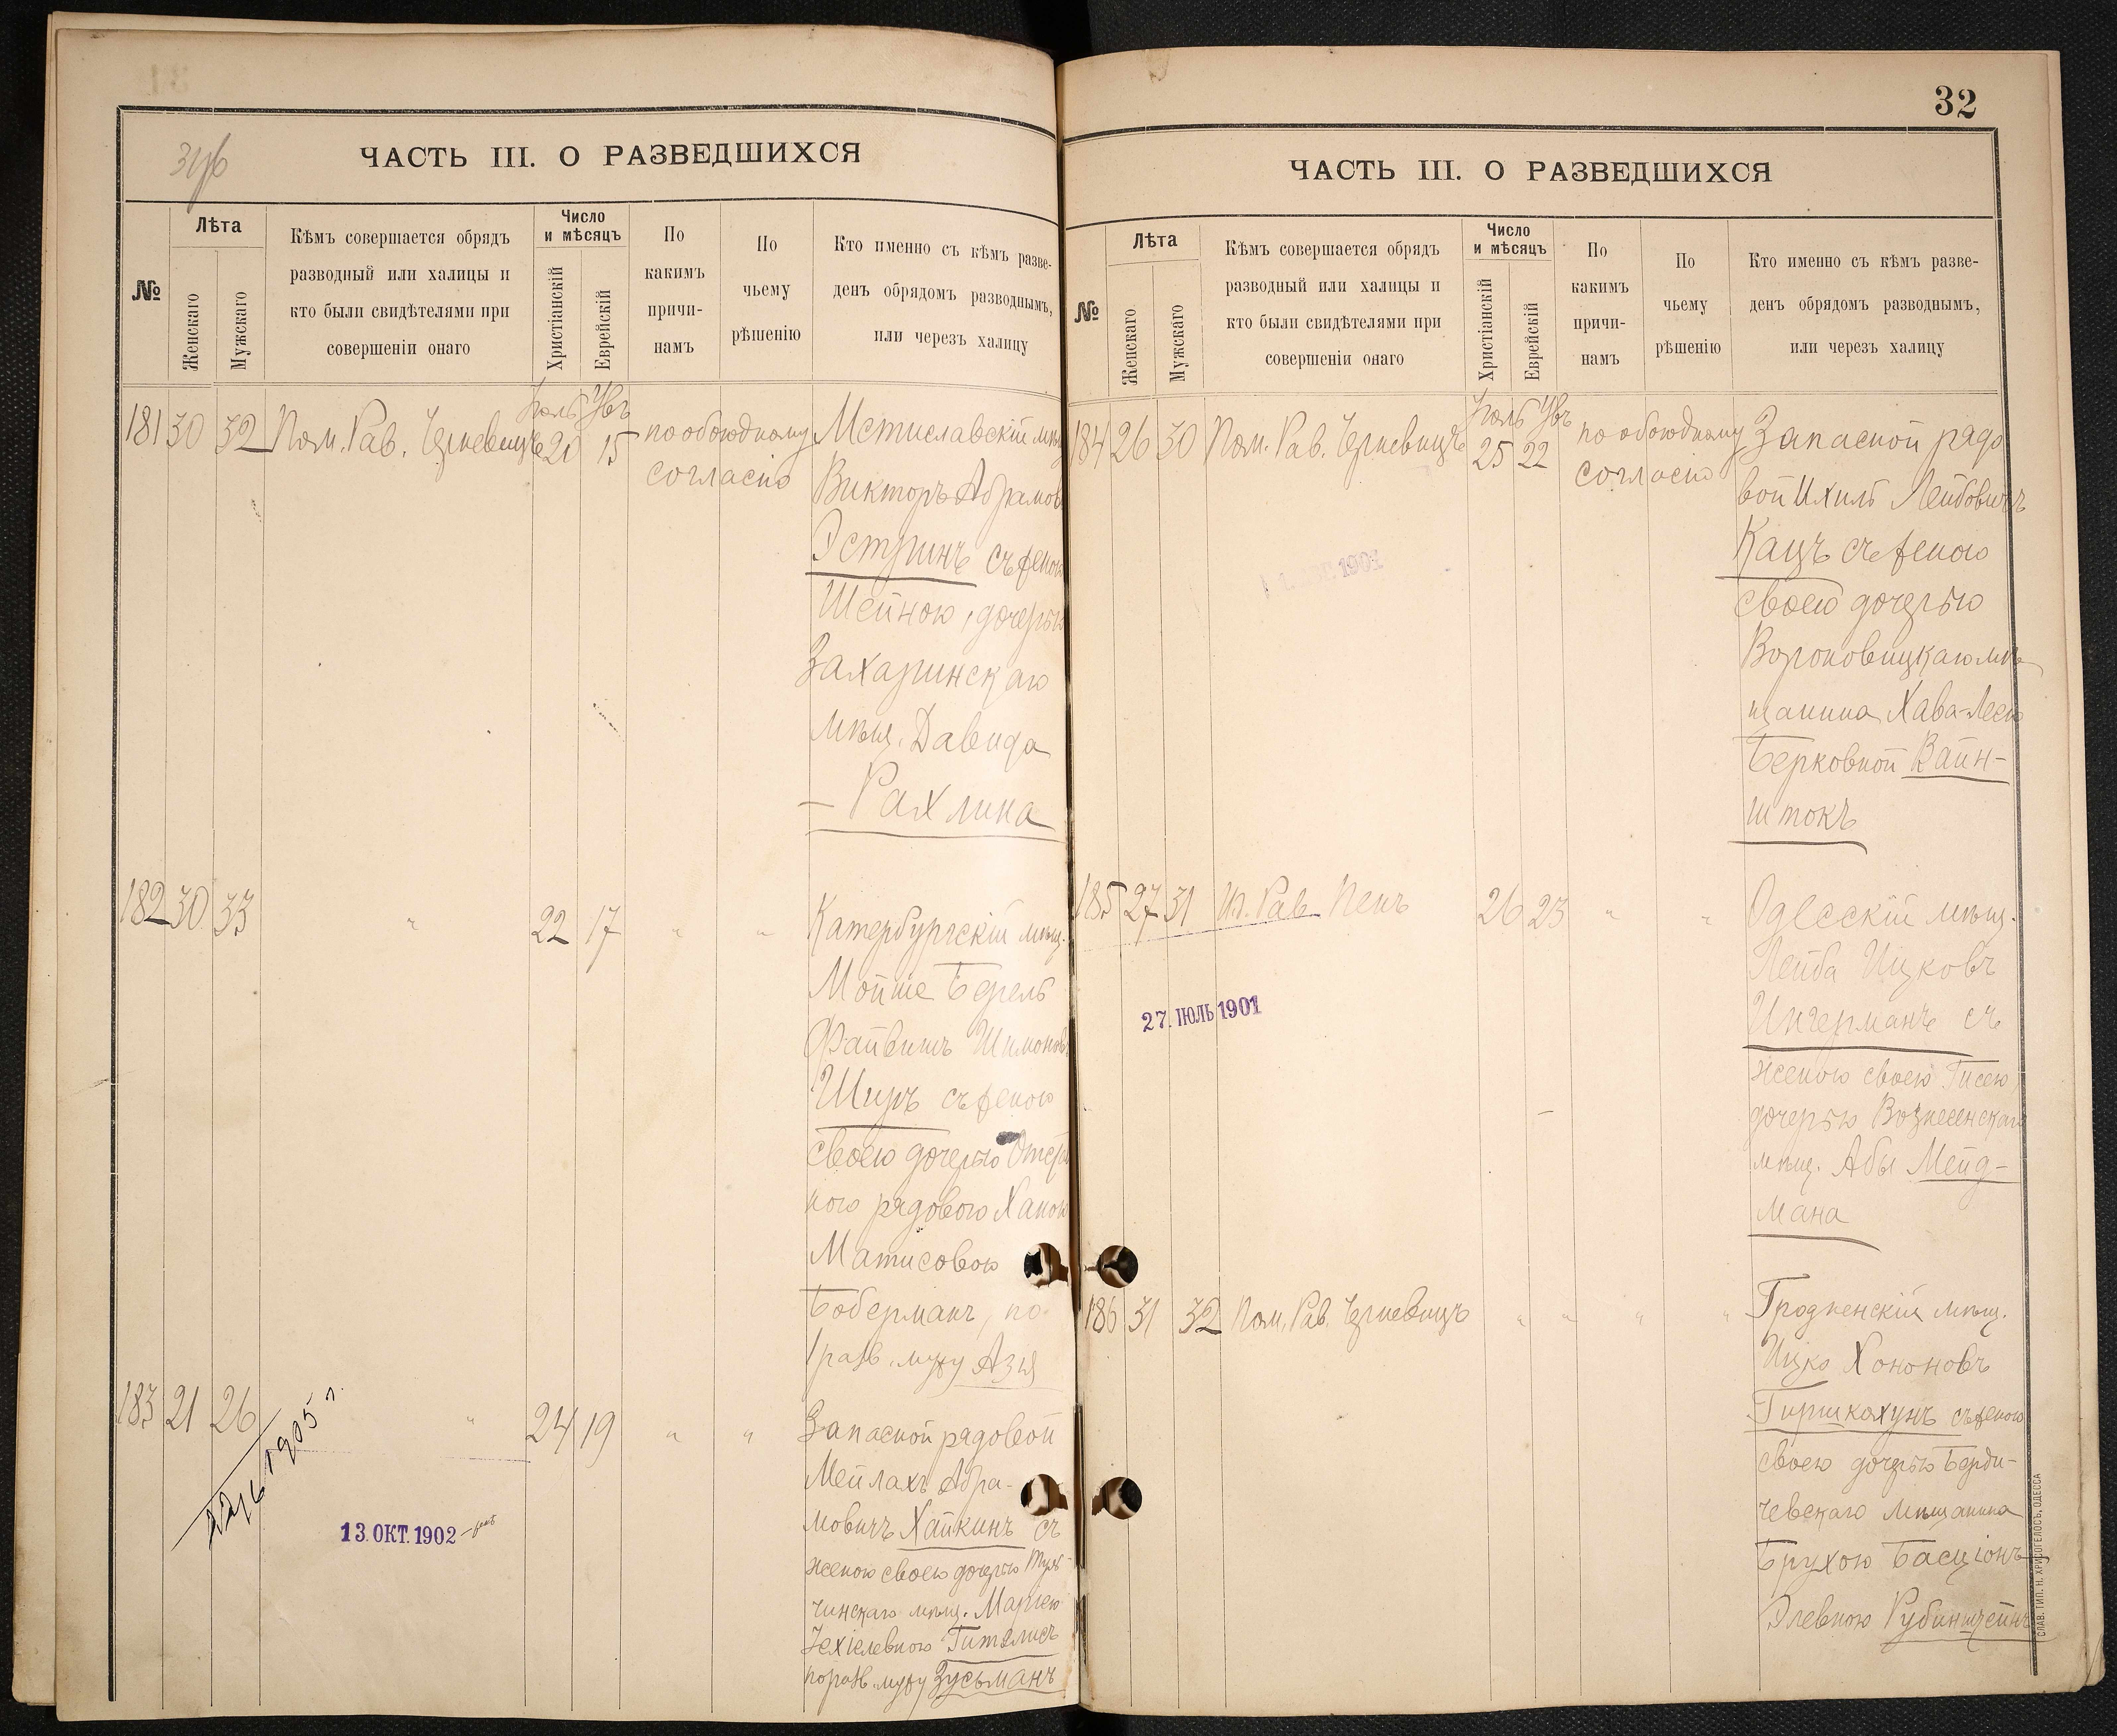 ЧАСТЬ III. О РАЗВЕДШИХСЯ
№
Лѣта
Женскаго
Мужскаго
Кѣмъ совершается обрядъ
разводный или халицы и
кто были свидѣтелями при
совершеніи онаго
Число
и мѣсяцъ
Христіанскій
Еврейскій
По
какимъ
причи-
намъ
По
чьему
рѣшенію
Кто именно съ кѣмъ разве-
денъ обрядомъ разводнымъ,
или черезъ халицу
181 30 32 Пом. Рав. Черневицъ Іюль 20 15 по обоюдному
согласію
Мстиславскій мѣщ
Викторъ Абрамов
Эстринъ съ женою
Шейною, дочерью
Захаринскаго
мѣщ. Давида
– Рахлина
182 30 33 " 22 17 " "
Катербургскій мѣщ.
Мойше Берель
Файвишъ Шимоновъ
Ширъ съ женою
своею дочерью Отстав
ного рядового Ханою
Матисовою
Боберманъ, по
/разв. мужу Азия
183 21 26 " 24 19 " "
Запасной рядовой
Мейлахъ Абра-
мовичъ Хайкинъ съ
женою своею дочерью Туль-
чинскаго мѣщ. Маріею
Іехіелевною Гителисъ
по разв. мужу Зусьманъ
1905 г.
13. ОКТ. 1902
32
ЧАСТЬ III. О РАЗВЕДШИХСЯ
№
Лѣта
Женскаго
Мужскаго
Кѣмъ совершается обрядъ
разводный или халицы и
кто были свидѣтелями при
совершеніи онаго
Число
и мѣсяцъ
Христіанскій
Еврейскій
По
какимъ
причи-
намъ
По
чьему
рѣшенію
Кто именно съ кѣмъ разве-
денъ обрядомъ разводнымъ,
или черезъ халицу
184 26 30 Пом. Рав. Черневицъ Іюль 25 22 по обоюдному
согласію
Запасной рядо
вой Ихиль Лейбовичъ
Кацъ съ женою
своею дочерью
Вороновицкаго мѣ
щанина Хава-Лесю
Берковной Вайн-
штокъ
1901
185 27 31 Ш. Рав. Пенъ 26 23 " "
Одесскій мѣщ.
Лейба Ицковъ
Ингерманъ съ
женою своею Гисею,
дочерью Вознесенскаго
мѣщ. Абы Мейд-
мана
27. ІЮЛЬ 1901
186 31 32 Пом. Рав. Черневицъ " " " "
Гродненскій мѣщ.
Ицко Хононовъ
Гиршкахунъ съ женою
своею дочерью Берди-
чевскаго мѣщанина
Брухою Басціонъ
Элевною Рубинштейнъ
СЛАВ. ТИП. Н. ХРИСОГЕЛОСЪ, ОДЕССА